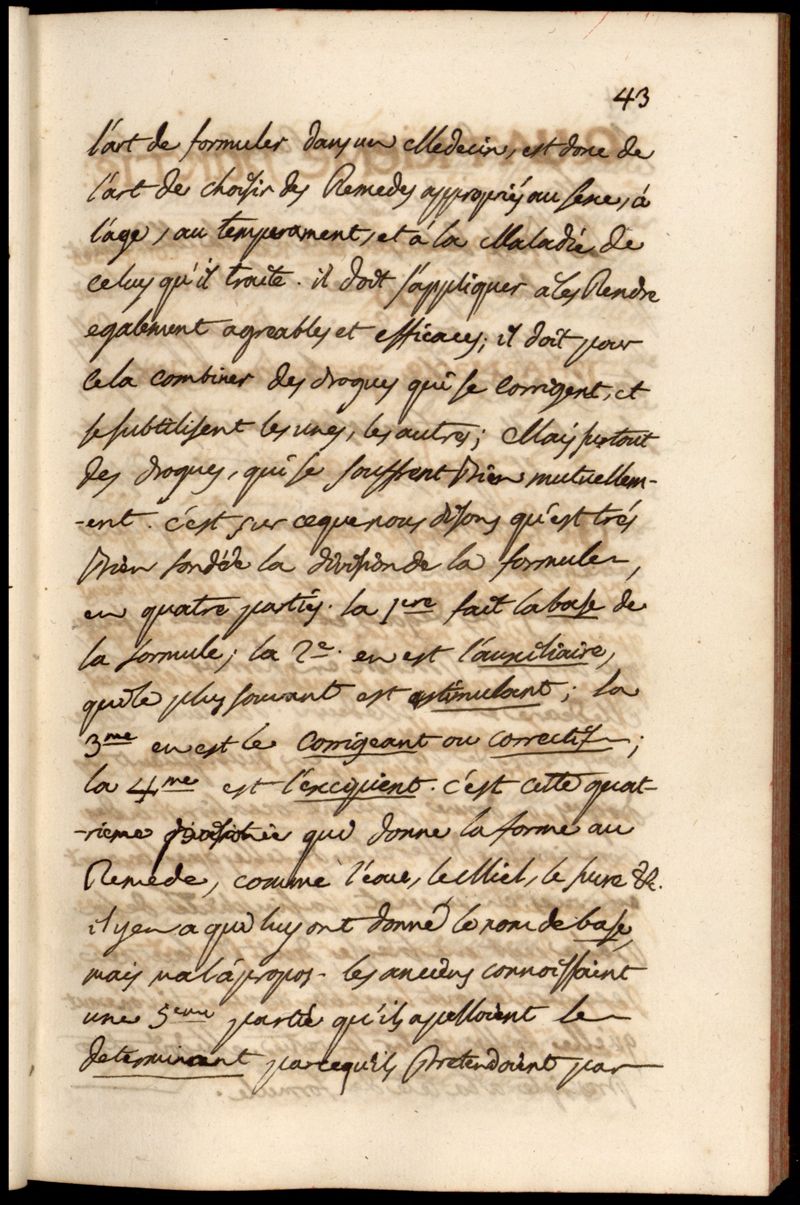 43
l'art de formuler dans un Medecin, est donc de
l'art de choisir des Remedes appropriés au sexe, à
l'age, au temperament, et à la Maladie de
celuy qu'il traite. il doit s'appliquer a les Rendre
egalement agreables et efficaces; il doit pour
cela combiner des drogues qui se corrigent, et
se subtilisent les unes, les autres; Mais surtout
des drogues, qui se souffrent Bien mutuellem-
-ent. c'est sur ce que nous disons qu'est trés
Bien fondée la division de la formule,
en quatre partiés. la 1ere fait la base de
la formule; la 2e. en est l'auxiliaire,
qui le plus souvant est stimulant; la
3me en est le corrigeant ou correctif;
la 4me est l'excipient. c'est cette quat-
-rieme qui donne la forme au
Remede, comme l'eau, le Miel, le sucre &c.
il y en a qui luy ont donné le nom de base,
mais mal à propos. les anciens connoissaint
une 5eme partie qu'ils apelloient le
determinant parcequ'ils Pretendoient par